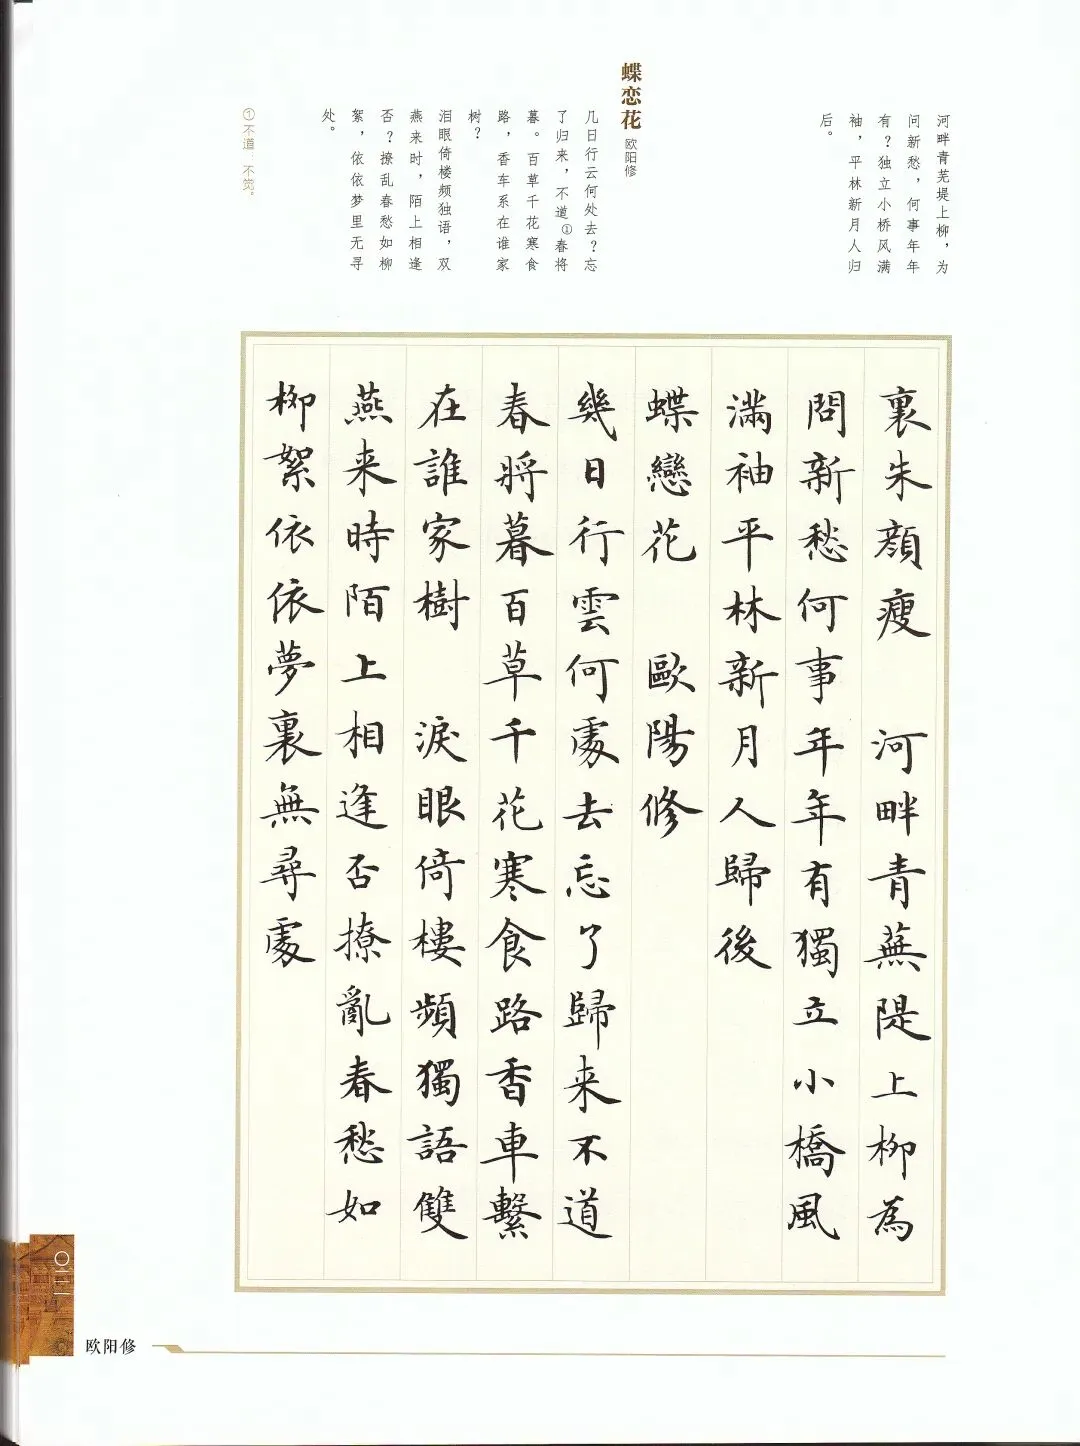 河畔青芜堤上柳，为
问新愁，何事年年
有？独立小桥风满
袖，平林新月人归
后。
蝶恋花 欧阳修
几日行云何处去？忘
了归来，不道①春将
暮。百草千花寒食
路，香车系在谁家
树？
泪眼倚楼频独语，双
燕来时，陌上相逢
否？撩乱春愁如柳
絮，依依梦里无寻
处。
①不道：不觉。
裏朱顔瘦 河畔青蕪隄上柳為
問新愁何事年年有獨立小橋風
滿袖平林新月人歸後
蝶戀花 歐陽修
幾日行雲何處去忘了歸来不道
春將暮百草千花寒食路香車繫
在誰家樹 淚眼倚樓頻獨語雙
燕来時陌上相逢否撩亂春愁如
柳絮依依夢裏無尋處
欧阳修